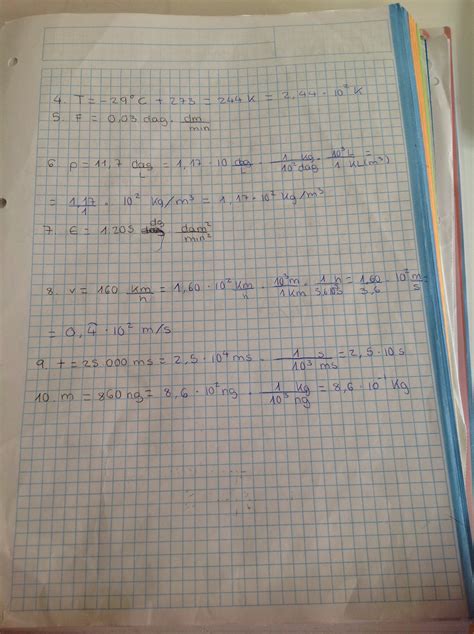 4. T = -29°C + 273 = 244 K = 2,44 · 10² K
5. F = 0,03 dag · dm/min
6. ρ = 11,7 dag/L = 1,17 · 10 dag/L · 1 kg/10² dag · 10³ L/1 KL(m³) =
= 1,17/1 · 10² kg/m³ = 1,17 · 10² kg/m³
7. E = 1.203 dg dam²/min²
8. v = 160 Km/h = 1,60 · 10² Km/h · 10³ m/1 Km · 1 h/3,6·10³ s = 1,60/3,6 · 10² m/s
= 0,4 · 10² m/s
9. t = 25 000 ms = 2,5 · 10⁴ ms · 1 s/10³ ms = 2,5 · 10 s
10. m = 860 ng = 8,6 · 10² ng · 1 kg/10³ ng = 8,6 · 10⁻¹ kg